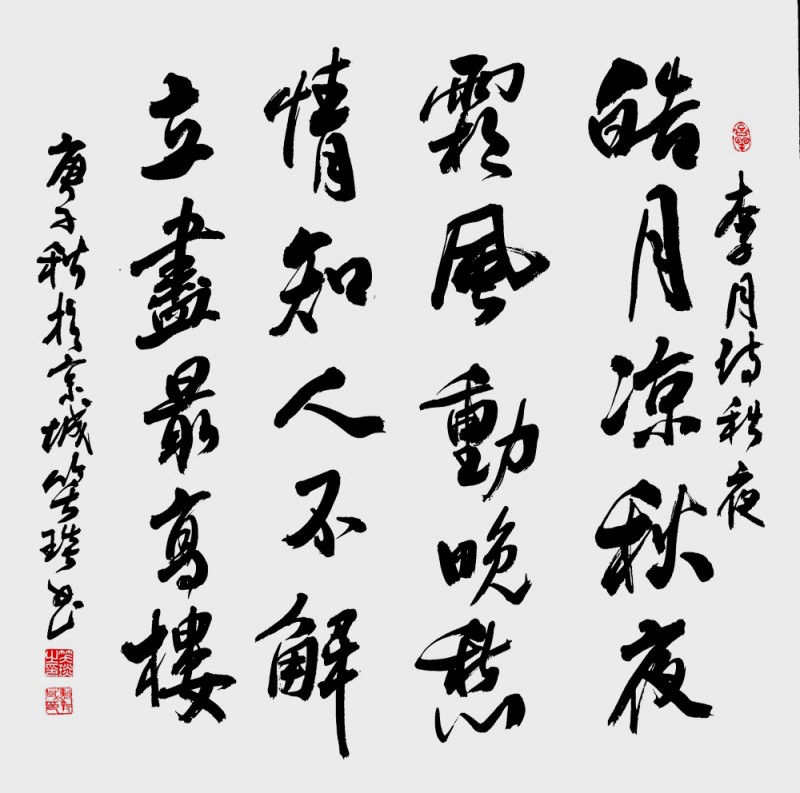 李月诗秋夜
皓月凉秋夜
霜風動晚愁
情知人不解
立盡最高樓
庚子秋於京城笑琰书